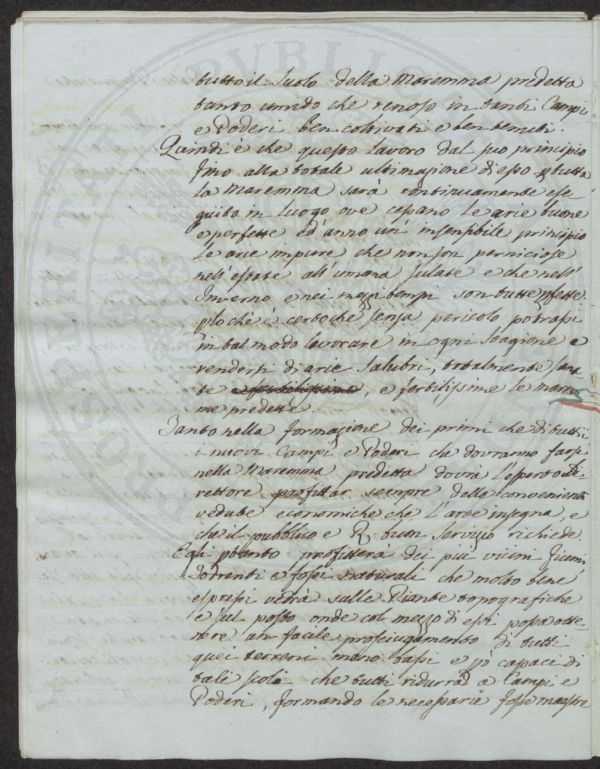 tutto il suolo della Maremma predetta
tanto umido che renoso in tanti Campi
e Poderi ben coltivati e ben tenuti.
Quindi è che questo lavoro dal suo principio
fino alla totale ultimazione d'esso p tutta
la Maremma sarà continuamente ese¬
guito in luogo ove cessano le arie buone
e perfette ed anno un' insensibile principio
le arie impure che non son perniciose
nell'estate all'umana salute e che nell'
Inverno e nei mezzi tempi son tutte pfette
ploche è certo che senza pericolo potrassi
in tal modo lavorare in ogni stagione e
rendersi di arie salubri, totalmente sane
te e fertilissime, e fertilissime le marem
me predette.
Tanto nella formazione dei primi che di tutti
i nuovi Campi e Poderi che dovranno farsi
nella Maremma predetta dovrà l'esperto Di
rettore profittar sempre delle convenienti
vedute economiche che l'arte insegna, e
che il pubblico e R. buon servizio richiede.
Egli ptanto profitterà dei più vicini Fiumi
Torrenti e fossi naturali che molto bene
espressi vedrà sulle Piante topografiche
e sul posto onde col mezzo di essi possa otte
nere un facile prosciugamento di tutti
quei terreni meno bassi e po capaci di
tale scolo che tutti ridurrà a Campi e
Poderi, formando le necessarie fosse maestre
PROSPERITATI PVBLICAE